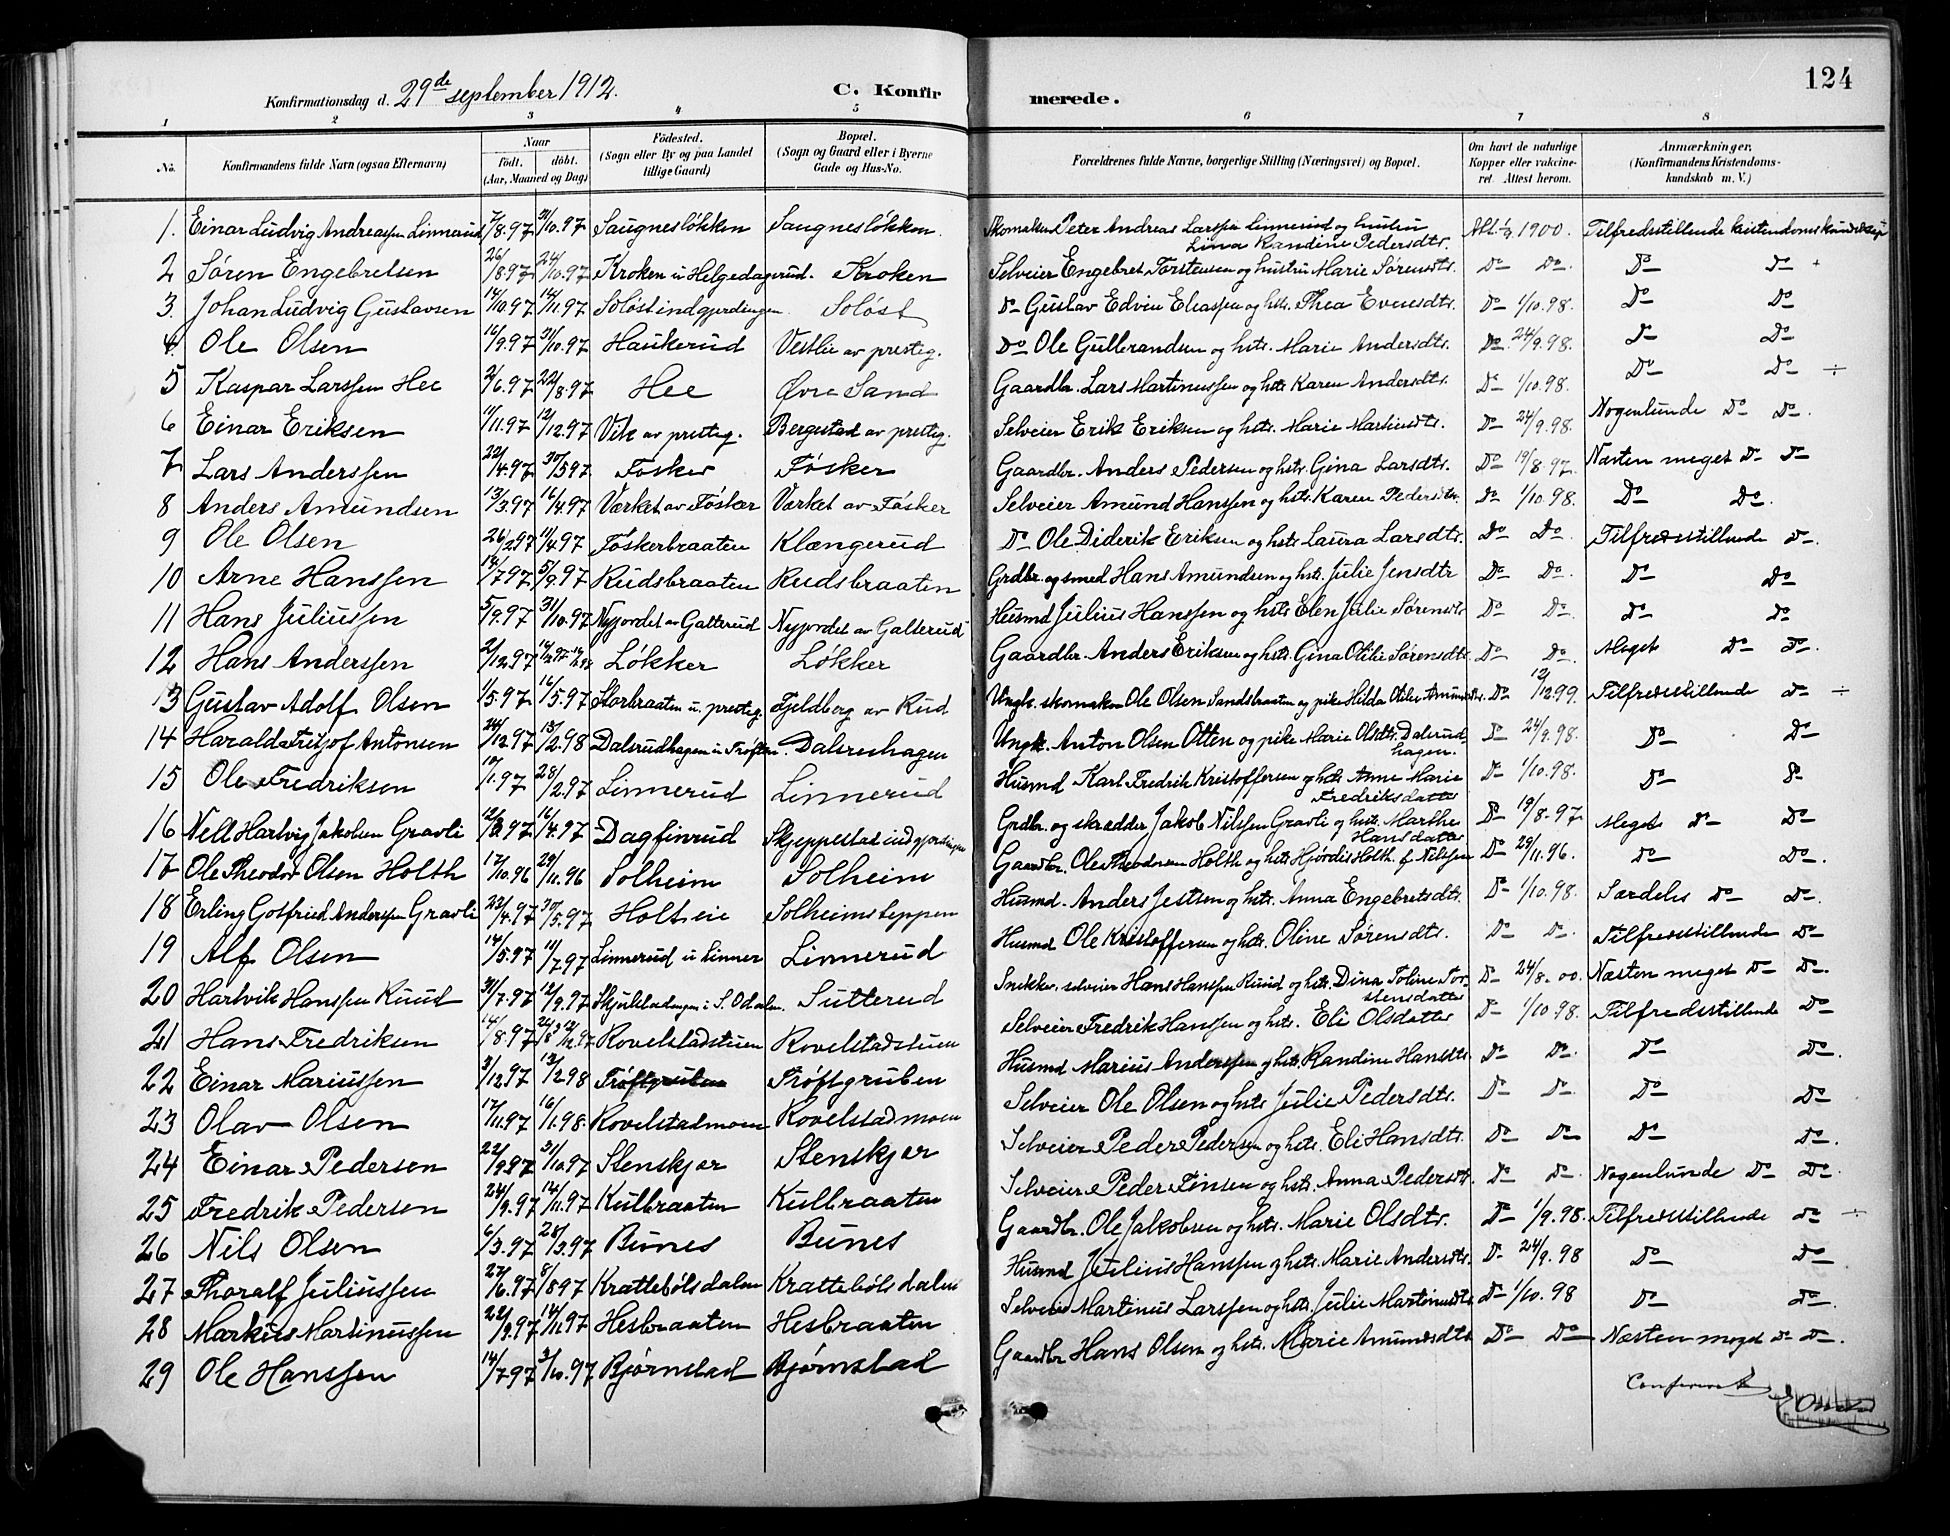 124
Konfirmationsdag d. 29de september 1912. C. Konfir merede.
1 2 3 4 5 6 7 8
No. Konfirmandens fulde Navn (ogsaa Efternavn) Naar født. døbt. (Aar, Maaned og Dag) Fødested. (Sogn eller By og paa Landet tillige Gaard) Bopæl. (Sogn og Gaard eller i Byerne Gade og Hus-No. Forældrenes fulde Navne, borgerlige Stilling (Næringsvei) og Bopæl. Om havt de naturlige Kopper eller vakcineret. Attest herom. Anmærkninger. (Konfirmandens Kristendomskundskab m. V.)
1. Einar Ludvig Andreassen Linnerud 7/8.97 31/10.97 Saugnesløkken Saugnesløkken. Skomaker Peter Andreas Larssen Linnerud og hustru Lina Randine Pedersdtr. 1900. Tilfredsstillende kristendomskundskap
2 Søren Engebretsen 26/8.97 24/10.97 Kroken u Helgedagsrud. Kroken Selveier Engebret Torstensen og hustru Marie Sørensdtr. Do Do. Do Do
3. Johan Ludvig Gustavsen 14/10.97 14/11.97 Soløstindgjerdingen. Soløst Do Gustav Edvin Eliassen og hstr. Thea Evensdtr. Do 1/10.98. Do Do
4. Ole Olsen 16/9.97 31/10.97 Haukerud Vestlie av presteg. Do Ole Gulbrandsen og hstr. Marie Andersdtr. Do. 24/9.98. Do Do
5 Kaspar Larssen Hee 2/6.97 22/8.97 Hee Øvre Sand Gaardbr. Lars Martinussen og hstr Karen Andersdtr. Do 1/10.98. Do Do ÷
6 Einar Eriksen 11/11.97 12/12.97 Vik av presteg. Bergestad av presteg. Selveier Erik Eriksen og hstr. Marie Martinsdtr. Do 24/9.98. Nogenlunde Do Do.
7 Lars Anderssen 22/4.97 30/5.97 Fosker Føsker Gaardbr. Anders Pedersen og hstr. Gina Larsdtr. Do 19/8.97. Næsten meget Do Do
8 Anders Amundsen 13/3.97 16/4.97 Værket av Føsker Værket av Føsker Selveier Amund Hanssen og hstr. Karen Pedersdtr. Do 1/10.98. Do Do.
9 Ole Olsen 26/2.97 11/4.97 Foskerbraaten Klængerud Do Ole Diderik Eriksen og hstr Laura Larsdtr. Do Do. Tilfredsstillende Do.
10 Arne Hanssen 14/7.97 5/9.97 Rudsbraaten Rudsbraaten Grdbr. og smed Hans Amundsen og hstr. Julie Jensdtr Do Do. Do Do
11 Hans Juliussen 5/9.97 31/10.97 Nyjordet av Galterud Nyjordet av Galterud Husmd Julius Hanssen og hstr Elen Julie Sørensdtr Do Do. Do Do
12 Hans Anderssen 2/12.97 Løkker Løkker Gaardbr. Anders Eriksen og hstr. Gina Otilie Sørensdtr. Do Do. Meget Do Do.
13 Gustav Adolf Olsen 1/5.97 16/5.97 Storbraaten u. presteg. Fjeldberg av Rud Ungk. skomaker Ole Olsen Sandsbraaten og pike Hilda Otilie Amundsdtr. Do 12/12.99. Tilfredsstillende Do ÷
14 Harald Fritjof Antonsen 24/12.97 13/2.98 Dalsrudhagen u Trøften. Dalsrudhagen Ungk. Anton Olsen Otten og pike Marie Olsdtr. Dalsrudhagen. Do 24/9.98. Do Do
15 Ole Fredriksen 10/1.97 28/2.97 Linnerud Linnerud Husmd Karl Fredrik Kristoffersen og hstr Anne Marie Fredriksdatter Do 1/10.98. Do Do
16 Nell Hartvig Jakobsen Gravli 16/4.97 Dagfinrud Skjeppestad indgjerdingen Grdbr. og skrædder Jakob Nilssen Gravli og hstr. Marthe Hansdatter Do 19/8.97. Meget Do Do
17 Ole Theodor Olsen Holth 17/10.96 29/11.96 Solheim Solheim Gaardbr. Ole Theodorsen Holth og hstr. Hjørdis Holth. f. Nilssen Do 29/11.96. Do Do.
18 Erling Gotfried Anderssen Gravli 22/4.97 30/5.97 Holt eie Solheimsteppen Husmd. Anders Jestsen og hstr. Anna Engebretsdtr. Do 1/10.98. Særdeles Do Do.
19 Alf Olsen 14/5.97 11/7.97 Linnerud u Linner Linnerud Husmd Ole Kristoffersen og hstr. Oline Sørensdtr. Do Do. Tilfredsstillende Do
20 Hartvik Hanssen Ruud 31/7.97 12/9.97 i S. Odalen. Sutterud Snikker, selveier Hans Hanssen Ruud og hstr. Dina Toline Torstensdatter Do 24/8.00. Næsten meget Do Do.
21 Hans Fredriksen 14/8.97 Rovelstadstuen Rovelstadstuen Selveier Fredrik Hanssen og hstr. Eli Olsdatter Do 1/10.98. Tilfredsstillende Do
22 Einar Mariussen 3/12.97 13/2.98 Trøftgruben Trøftgruben Husmd Marius Anderssen og hstr. Randine Hansdtr. Do Do. Do Do.
23 Olav Olsen 17/11.97 16/1.98. Rovelstadmoen Rovelstadmoen Selveier Ole Olsen og hstr. Julie Pedersdtr. Do Do. Do Do
24 Einar Pedersen 22/9.97 31/10.97 Stenskjær Stenskjær Selveier Peder Pedersen og hstr. Eli Hansdtr. Do Do Do Do.
25 Fredrik Pedersen 24/9.97 14/11.97 Kulbraaten Kulbraaten Selveier Peder Finsen og hstr. Anna Pedersdtr. Do Do. Nogenlunde Do Do.
26 Nils Olsen 6/3.97 28/3.97 Bunes Bunes Gaardbr. Ole Jakobsen og hstr. Marie Olsdtr. Do 1/9.98. Tilfredsstillende Do ÷
27 Thoralf Juliussen 27/6.97 8/8.97 Krattebølsdalen Krattebølsdalen Husmd Julius Hanssen og hstr. Marie Andersdtr. Do 24/9.98 Do Do
28 Markus Martinussen 22/9.97 14/11.97 Hesbraaten Hesbraaten Selveier Martinus Larssen og hstr. Julie Martinusdtr. Do 1/10.98 Do Do.
29 Ole Hanssen 14/7.97 3/10.97 Bjørnstad Bjørnstad Gaardbr Hans Olsen og hstr. Marie Amundsdtr. Do Do Næsten meget Do Do.